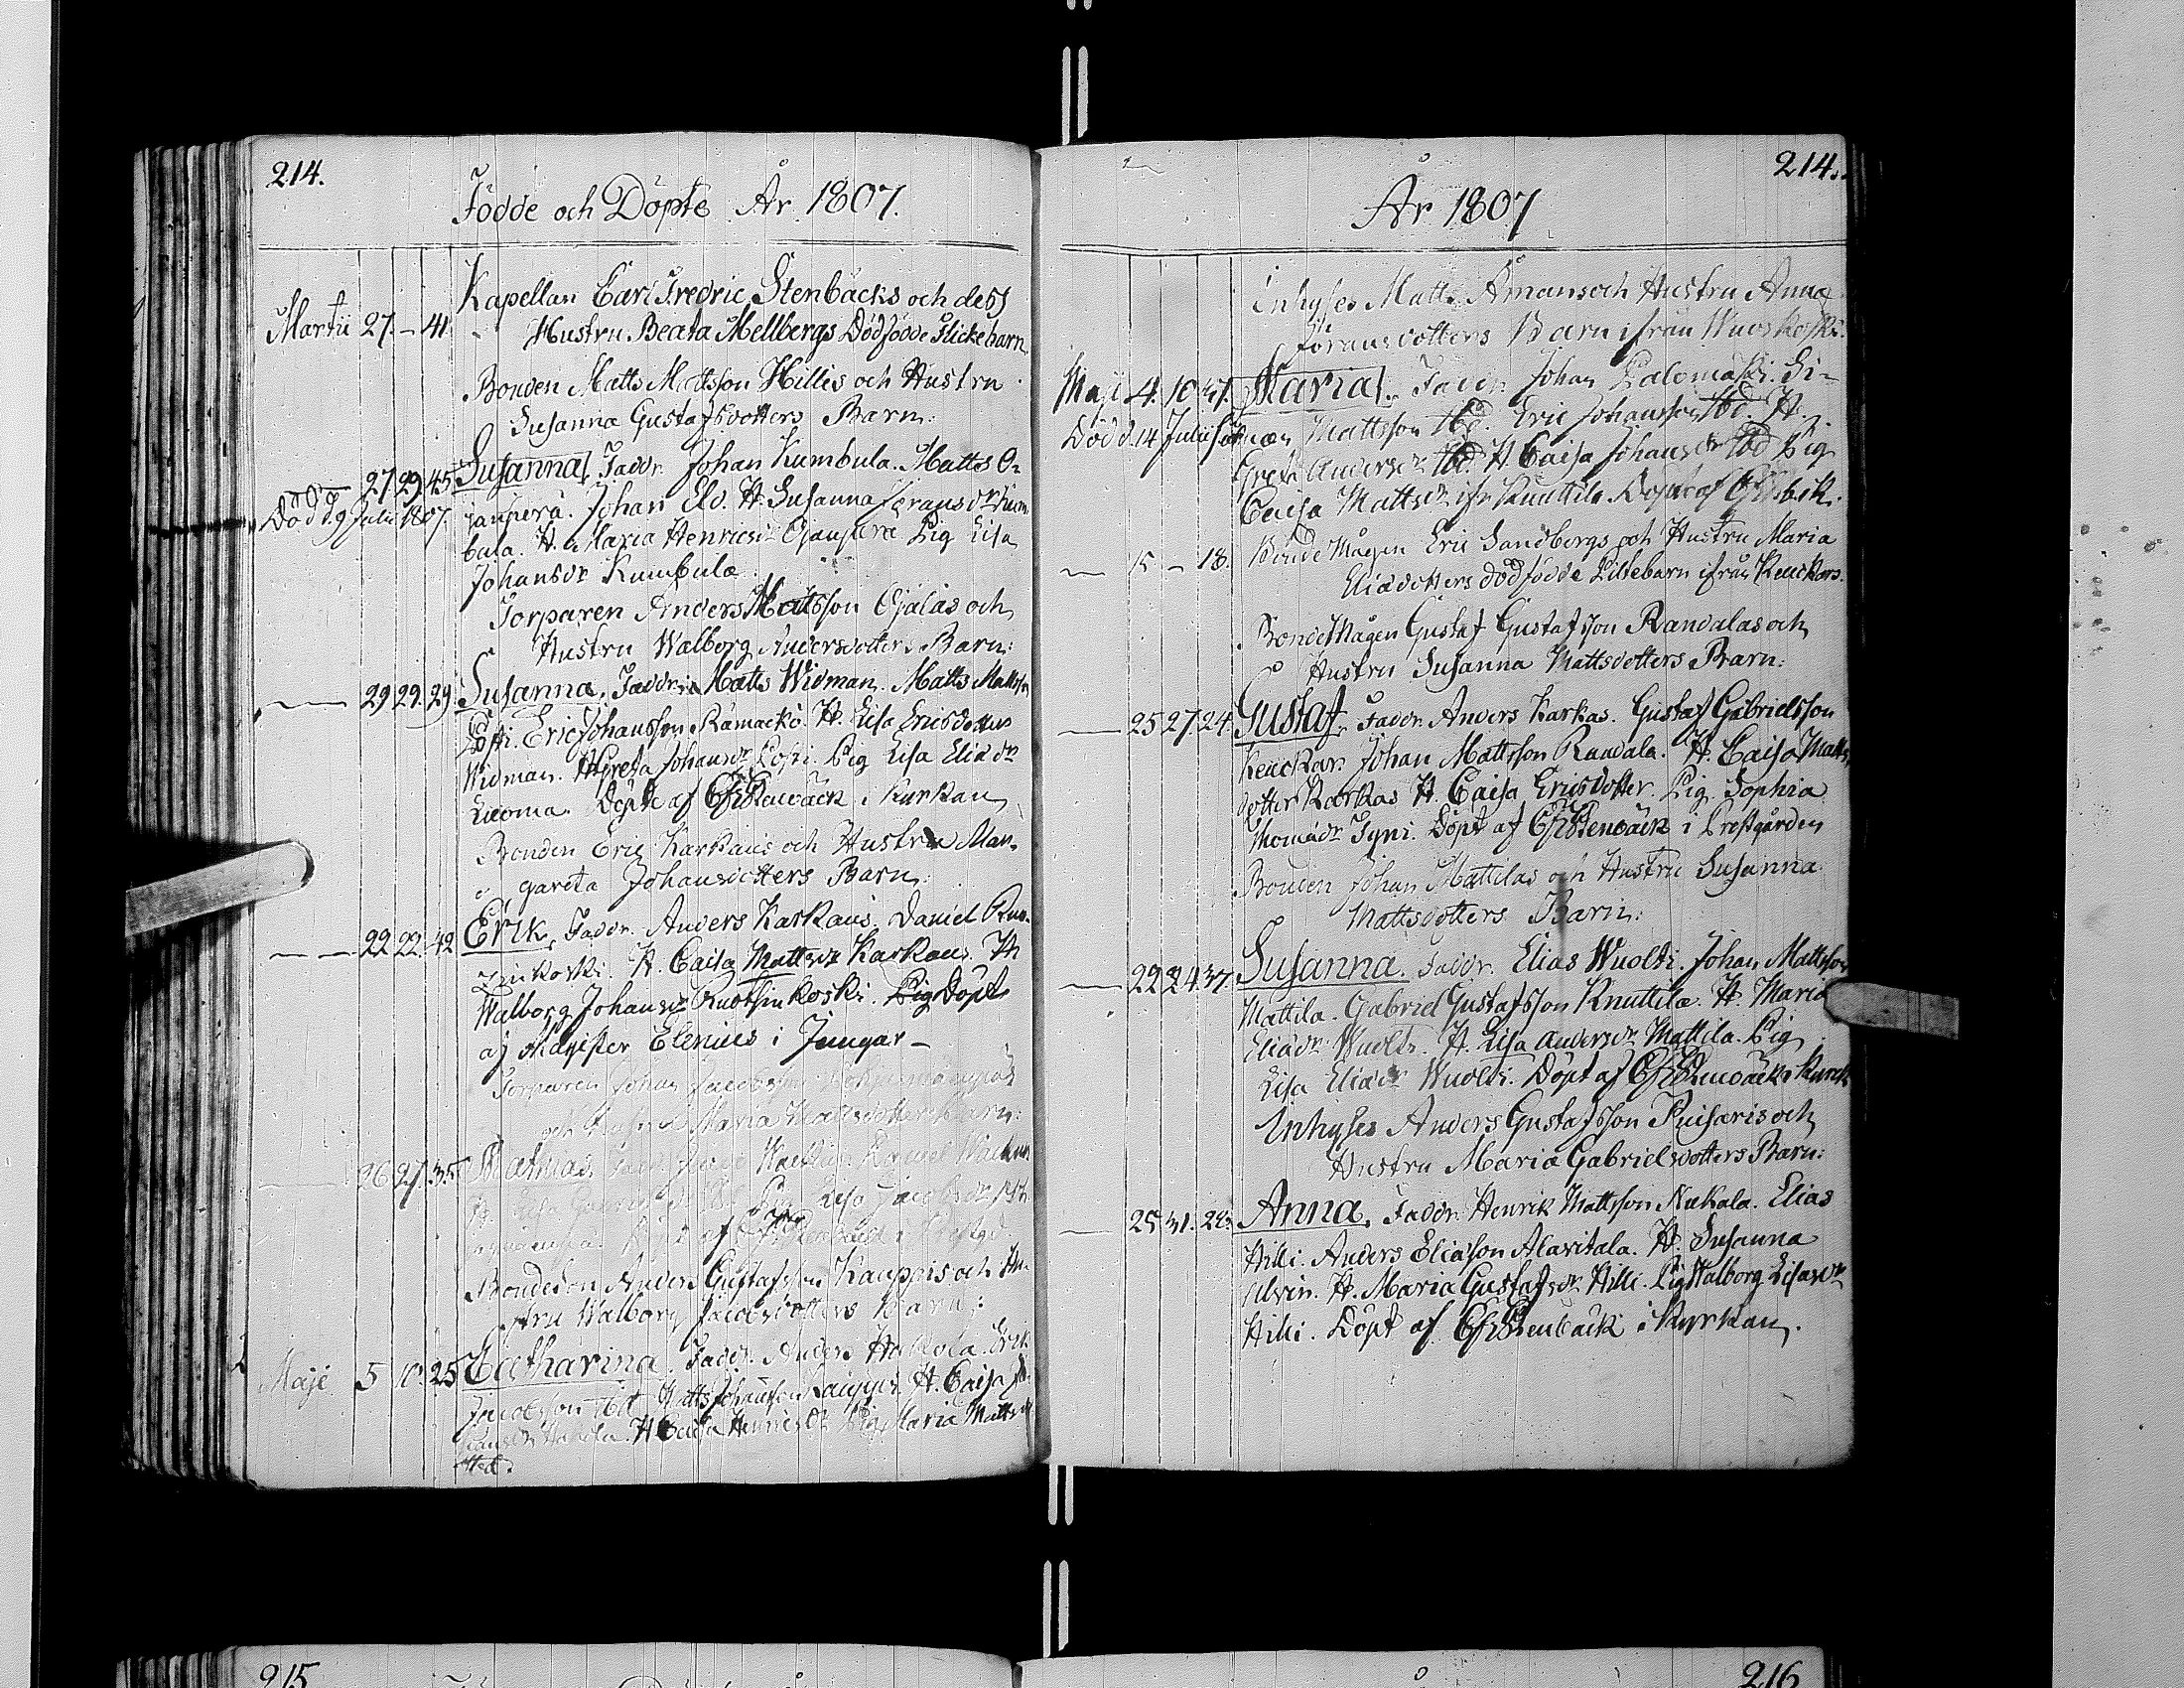 214.
Födde och Döpte År 1807.
Kapellan Carl Fredric Stenbäcks och dess
Martii 27 - 41 Hustru Beata Mellbergs Dödfödde Flickebarn
Bonden Matts Mattsson Hillis och Hustru
Susanna Gustafsdotters Barn:
27 29 45 Susanna. Faddr. Johan Kumbula. Matts O-
Död d. 9 Julii 1807.
janperä. Johan Eld. H. Susanna Jöransdr Kum-
bula. H. Maria Henricsdr Ojanperä Pig Lisa
Johansdr Kumbula
Torparen Anders Mattsson Ojalas och
Hustru Walborg Andersdotters Barn:
29 29. 29. Susanna. Faddr. Matts Widman. Matts Mattson
Posti. Eric Johansson Rämäckö. H. Lisa Ericsdotter
Widman. H. Greta Johansdr Posti. Pig Lisa Eliædr
Döpt af CFStenbäck i Kurkan
Bonden Eric Karkaus och Hustru Mar-
gareta Johansdotters Barn:
22 22. 42 Erik, Faddr. Anders Karkaus. Daniel
koski. H. Caisa Mattsdr Karkaus. H
Walborg Johansdr koski. Pig Döpt
af Magister Elenius i Jungar-
Torparen Johan Jacobsson
och Hustru Maria Mattsdotters Barn:
26 27. 35
H. Lisa Pig Lisa Jacobsdr
af CFStenbäck i Prestgd.
Bondeson Anders Gustafsson Kauppis och Hu-
stru Walborg Jacobsdotters Barn:
Maji 5 10. 25 Catharina. Faddr. Anders Hakola. Erik
Jacobsson ibd Matts Johansson Kauppi. H. Caisa Jo-
hansdr Hakola. H Caisa Henricsdr Pig Maria Mattsdr
ibd.
214.
År 1807
Inhyses Matts Åmans och Hustru Anna
Jöransdotters Barn ifrån Wuoskoski.
Maji 4. 10 37. Maria. Faddr. Johan Palomäki. Si-
Död d. 14 Julii
mon Mattsson ibd. Eric Johansson ibd. H.
Greta Andersdr ibd. H. Caisa Johansdr ibd Pig
Caisa Mattsdr ifr. Knuttila Döpt af CFStbck.
15 - 18. BondeMågen Eric Sandbergs och Hustru Maria
Eliædotters dödfödde Lillebarn ifrån Keuckars.
BondeMågen Gustaf Gustafsson Randalas och
Hustru Susanna Mattsdotters Barn:
25 27. 24. Gustaf. Faddr. Anders Karkas. Gustaf Gabrielsson
Keuckar. Johan Mattsson Randala. H. Caisa Matts-
dotter Karkas H. Caisa Ericsdotter. Pig. Sophia
Thomædr Tyni. Döpt af CFStenbäck i Prestgården
Bonden Johan Mattilas och Hustru Susanna
Mattsdotters Barn:
22 24. 37. Susanna. Faddr. Elias Wuolti. Johan Mattsson
Mattila. Gabriel Gustafsson Knuttila. H. Maria
Eliædr Wuolti. H. Lisa Andersdr Mattila. Pig
Lisa Eliædr Wuolti. Döpt af CFStenbäck i Kurck
Inhyses Anders Gustafsson Puisaris och
Hustru Maria Gabrielsdotters Barn:
25 31. 28. Anna. Faddr. Henrik Mattsson Kukala. Elias
Hilli. Anders Eliasson Alavitala. H. Susanna
Ulvin. H. Maria Gustafsdr Hilli. Pig Walborg Lisasdr
Hilli. Döpt af CFStenbäck i Kyrkan.
215
216